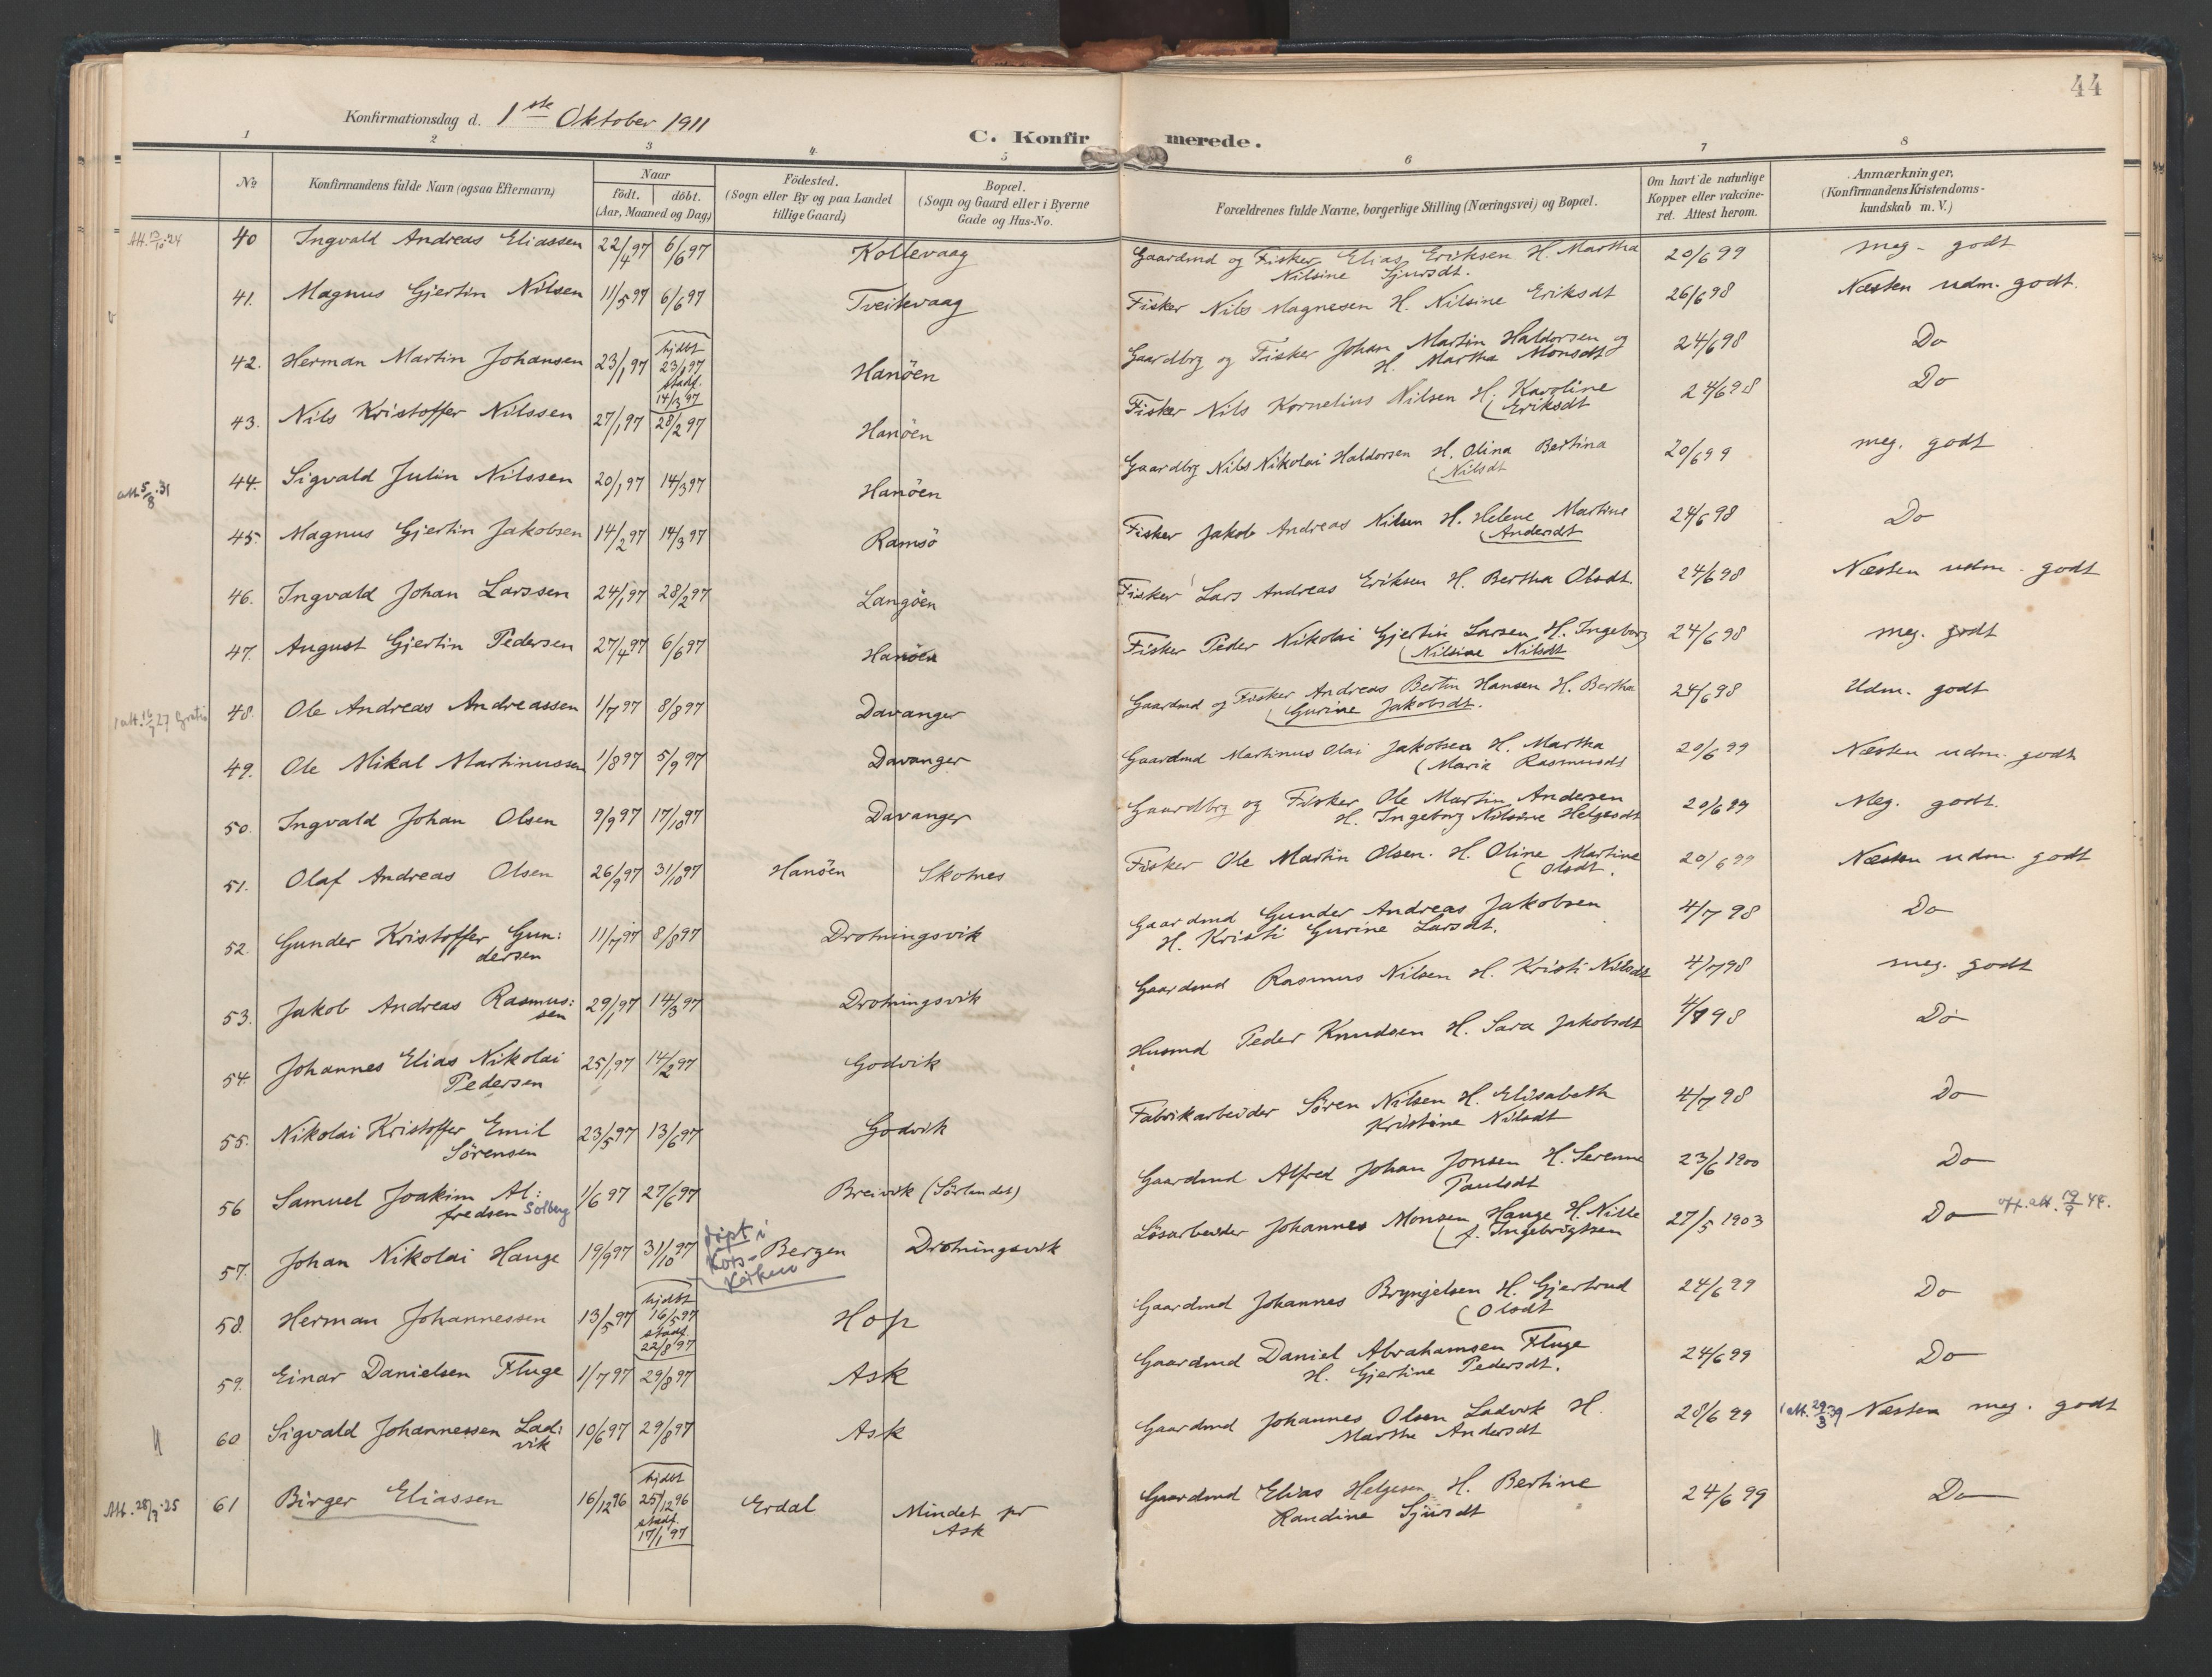 44
Konfirmationsdag d. 1ste Oktober 1911
C. Konfirmerede.
1 2 3 4 5 6 7 8
No
Konfirmandens fulde Navn (ogsaa Efternavn)
Naar
födt. döbt.
(Aar, Maaned og Dag)
Födested.
(Sogn eller By og paa Landet
tillige Gaard)
Bopæl.
(Sogn og Gaard eller i Byerne
Gade og Hus-No.
Forældrenes fulde Navne, borgerlige Stilling (Næringsvei) og Bopæl.
Om havt de naturlige
Kopper eller vakcine-
ret. Attest herom.
Anmærkninger.
(Konfirmandens Kristendoms-
kundskab m. V.)
40 Ingvald Andreas Eliassen 22/4 97 6/6 97 Kollevaag Gaardmd og Fisker Elias Eriksen H. Martha 20/6 99 meg. godt
Nilsine Sjursdt.
41. Magnus Gjertin Nilsen 11/5 97 6/6 97 Tveitevaag Fisker Nils Magnesen H. Nilsine Eriksdt 26/6 98 Næsten udm. godt.
42. Herman Martin Johansen 23/1 97 hjdbt 23/1 97 stadf. 14/3 97 Hanöen Gaardbrg og Fisker Johan Martin Haldorsen og 24/6 98 Do
H. Martha Monsdt
43. Nils Kristoffer Nilssen 27/1 97 28/2 97 Hanöen Fisker Nils Kornelius Nilsen H. Karoline 24/6 98 Do
(Eriksdt
att. 5/8 31 44. Sigvald Julin Nilssen 20/1 97 14/3 97 Hanöen Gaardbrg Nils Nikolai Haldorsen H. Olina Bertina 20/6 99 meg. godt
(Nilsdt
45. Magnus Gjertin Jakobsen 14/2 97 14/3 97 Ramsö Fisker Jakob Andreas Nilsen H. Helene Martine 24/6 98 Do
(Andersdt
46. Ingvald Johan Larssen 24/1 97 28/2 97 Langöen Fisker Lars Andreas Eriksen H. Bertha Olsdt. 24/6 98 Næsten udm. godt
47. August Gjertin Pedersen 27/4 97 6/6 97 Hanöen Fisker Peder Nikolai Gjertin Larsen H. Ingeborg 24/6 98 meg. godt
(Nilsine Nilsdt
48. Ole Andreas Andreassen 1/7 97 8/8 97 Davanger Gaardmd og Fisker Andreas Bertin Hansen H. Bertha 24/6 98 Udm. godt
(Gurine Jakobsdt.
49. Ole Mikal Martinussen 1/8 97 5/9 97 Davanger Gaardmd Martinus Olai Jakobsen H. Martha 20/6 99 Næsten udm. godt
(Maria Rasmusdt
50. Ingvald Johan Olsen 9/9 97 17/10 97 Davanger Gaardbrg og Fisker Ole Martin Andersen 20/6 99 Meg. godt.
H. Ingeborg Nilsine Helgesdt
51. Olaf Andreas Olsen 26/9 97 31/10 97 Hanöen Skotnes Fisker Ole Martin Olsen. H. Oline Martine 20/6 99 Næsten udm. godt
(Olsdt.
52. Gunder Kristoffer Gun: 11/7 97 8/8 97 Drotningsvik Gaardmd Gunder Andreas Jakobsen 4/7 98 Do
dersen H. Kristi Gurine Larsdt.
53. Jakob Andreas Rasmus: 29/1 97 14/3 97 Drotningsvik Gaardmd Rasmus Nilsen H. Kristi Nilsdt 4/7 98 meg. godt
sen
54. Johannes Elias Nikolai 25/1 97 14/2 97 Godvik Husmd Peder Knudsen H. Sara Jakobsdt 4/7 98 Do
Pedersen
55. Nikolai Kristoffer Emil 23/5 97 13/6 97 Godvik Fabrikarbeider Sören Nilsen H. Elisabeth 4/7 98 Do
Sörensen Kristine Nilsdt
56 Samuel Joakim Al: 1/6 97 27/6 97 Breivik (Sörlandet) Gaardmd Alfred Johan Jonsen H. Serenne 23/6 1900 Do
fredsen Solberg Paulsdt
57. Johan Nikolai Hauge 19/9 97 31/10 97 döpt i Kors-Kirken Bergen Drotningsvik Lösarbeider Johannes Monsen Hauge H. Nille 27/5 1903 Do
(f. Ingebrigtsen
58. Herman Johannessen 13/5 97 hjdbt 16/5 97 stadf. 22/8 97 Hop Gaardmd Johannes Brynjelsen H. Gjertrud 24/6 99 Do
(Olsdt
59. Einar Danielsen Fluge 1/7 97 29/8 97 Ask Gaardmd Daniel Abrahamsen Fluge 24/6 99 Do
H. Gjertine Pedersdt.
60 Sigvald Johannessen Lad: 10/6 97 29/8 97 Ask Gaardmd Johannes Olsen Ladvik H. 28/6 99 1 att. 29/3 39 Næsten meg. godt
vik Marthe Andersdt
Att. 28/9 25 61 Birger Eliassen 16/12 96 hjdbt 25/12 96 stadf. 17/1 97 Erdal Mindet pr Gaardmd Elias Helgesen H. Bertine 24/6 99 Do
Ask Randine Sjursdt